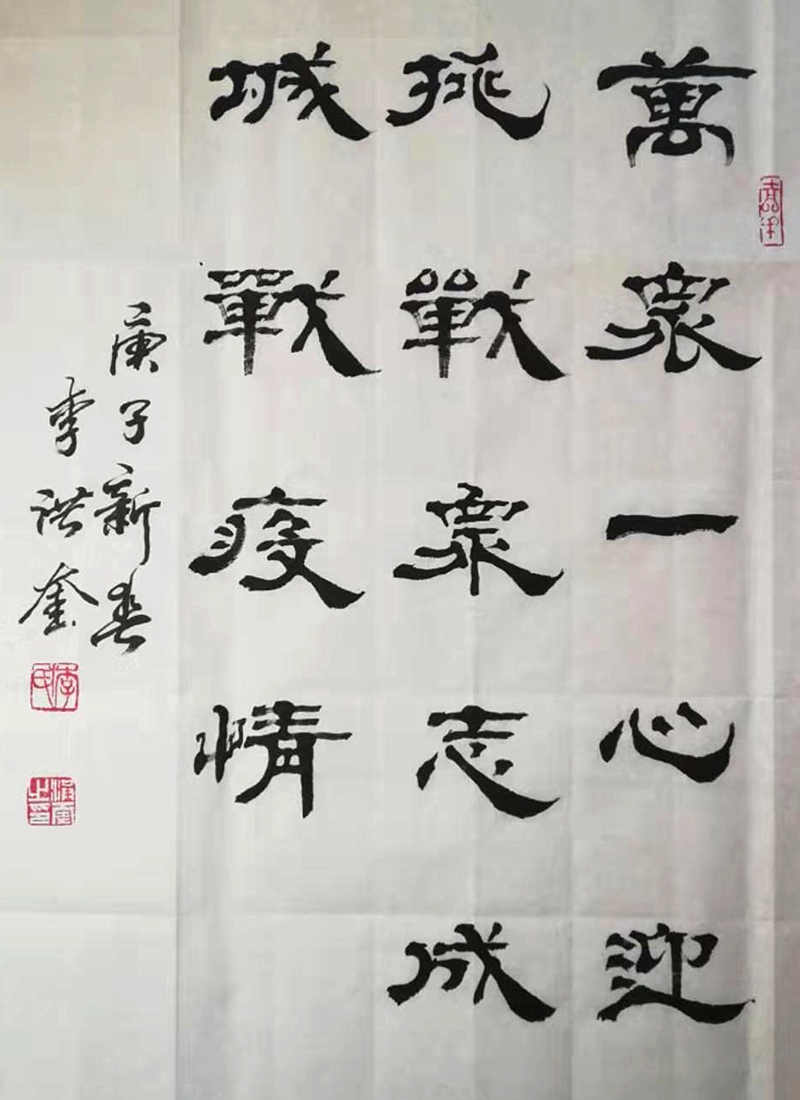 萬衆一心迎
挑戰衆志成
城戰疫情
庚子新春
李洪奎